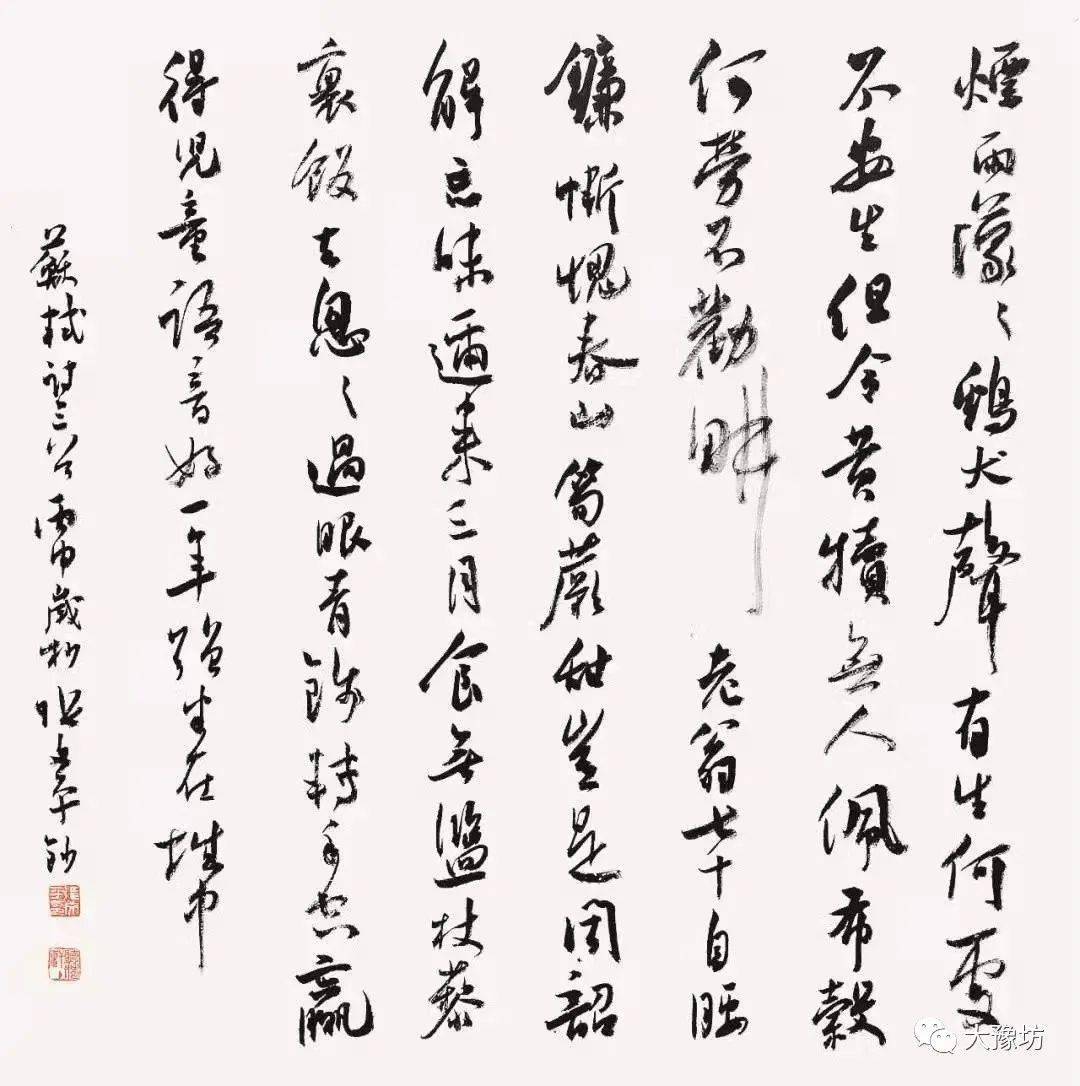 煙雨濛々鷄犬聲有生何處
不安生但令黄犢無人佩布穀
何勞不勸耕老翁七十自腰
鐮慚愧春山筍蕨甜豈是聞韶
解忘味邇來三月食無鹽杖藜
裹飯去怱々過眼青錢轉手空贏
得兒童語音好一年強半在城中
蘇軾詩三首丙申歲杪鈔
大豫坊